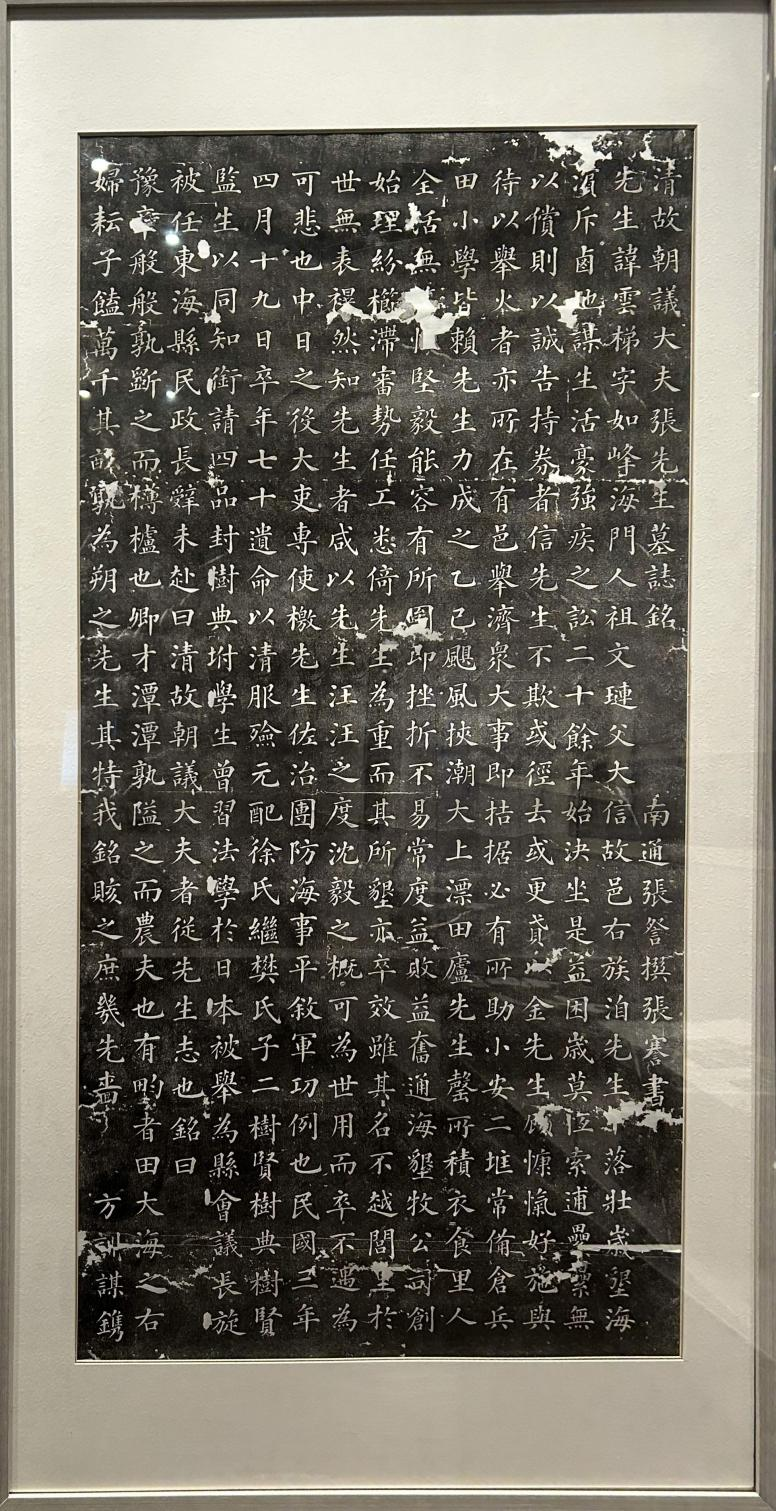 清故朝議大夫張先生墓誌銘 南通張詧撰張謇書
先生諱雲梯字如峰海門人祖文璉父大信故邑右族洎先生落壯歲墾海
濱斥鹵地謀生活豪強疾之訟二十餘年始決坐是益困歲莫恆索逋纍纍無
以償則以誠告持券者信先生不欺或徑去或更貣以金先生顧慷慨好施與
待以舉火者亦所在有邑舉濟眾大事即拮据必有所助小安二堆常備倉兵
田小學皆賴先生力成之乙巳颶風挾潮大上漂田廬先生罄所積衣食里人
全活無堅毅能容有所困即挫折不易常度益敗益奮通海墾牧公司創
始理紛櫛滯審勢任工悉倚先生為重而其所墾亦卒效雖其名不越閭里於
世無表襮然知先生者咸以先生汪汪之度沈毅之概可為世用而卒不遇為
可悲也中日之役大吏專使檄先生佐治團防海事平敘軍功例也民國三年
四月十九日卒年七十遺命以清服殮元配徐氏繼樊氏子二樹賢樹典樹賢
監生以同知銜請四品封樹典坿學生曾習法學於日本被舉為縣會議長旋
被任東海縣民政長辭未赴曰清故朝議大夫者從先生志也銘曰
豫章般般孰斲之而欂櫨也卿才潭潭孰隘之而農夫也有畇者田大海之右
婦耘子饁萬千其畝孰為朔之先生其特我銘賅之庶幾先嗇 方訓謀鐫